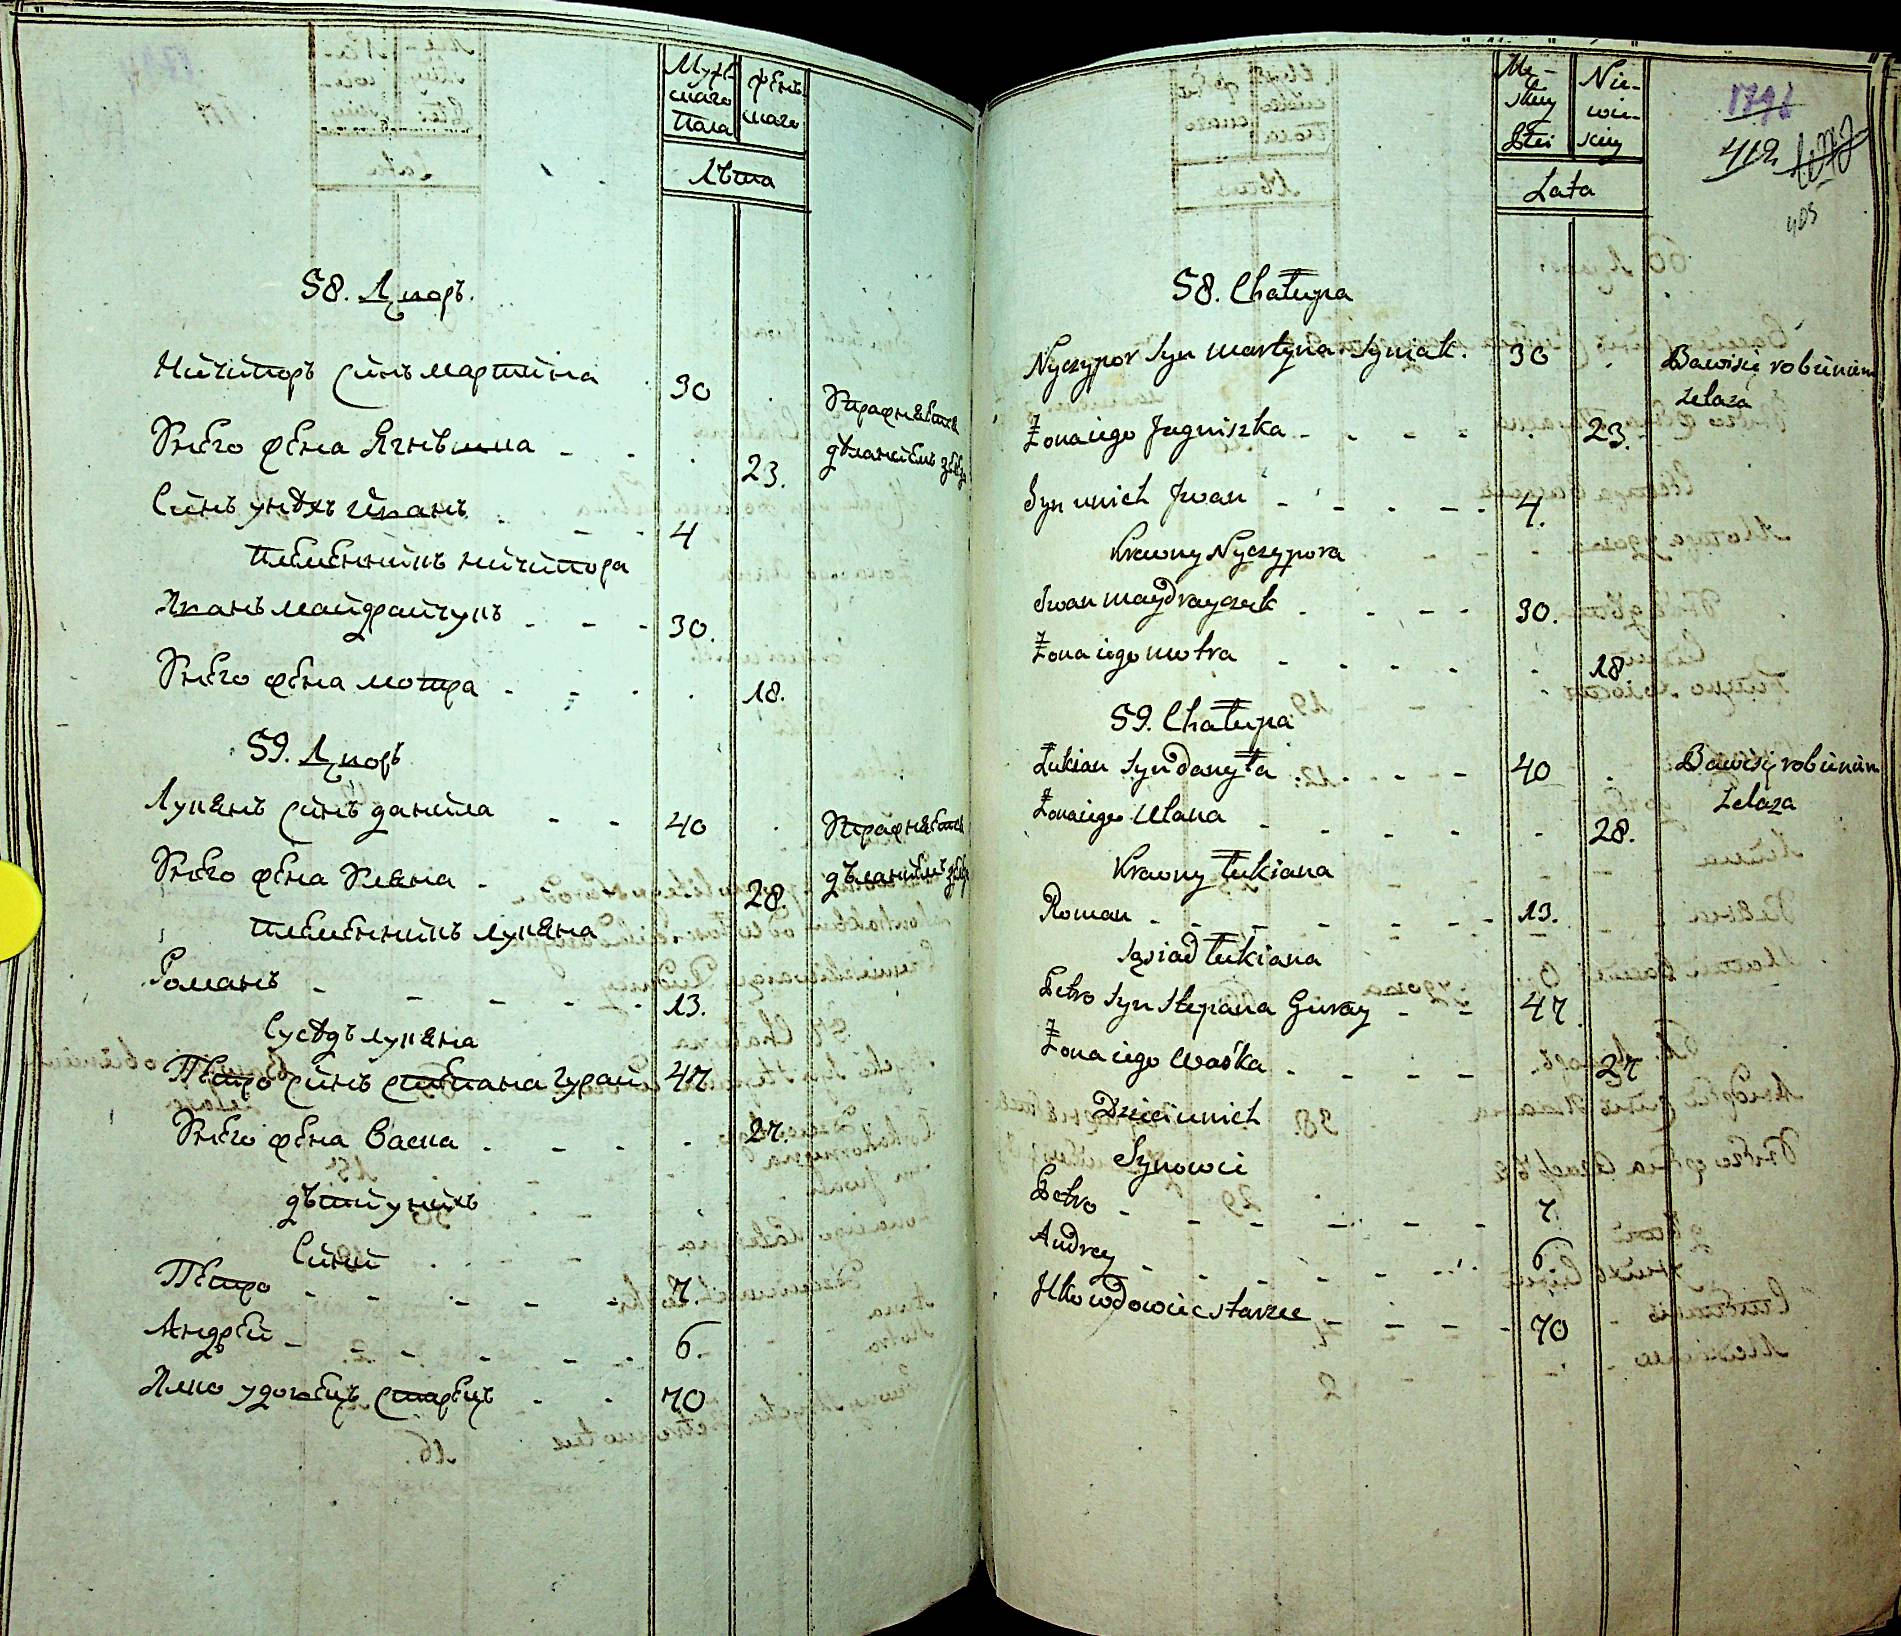 Мужс
каго
Пола
женъ
скаго
Лѣта
58. Дворъ.
Ничипоръ синъ мартина 30
Упражняется
дѣланіемъ
Уиего жена Ягнѣшка - - 23.
Синъ унѣхъ иванъ - - - 4
племенникъ ничипора
Иванъ майдрайчукъ - - - 30.
Уиего жена мотра - - - 18.
59. Дворъ
Лукянъ синъ данила - - 40
Упражняется
дѣланіемъ
Уиего жена Уляна - - 28.
племенникъ лукяна
Романъ - - - - - 13.
Сусѣдъ лукяна
Петро синъ степана гурай 47
Уиего жена васка - - - - 27.
дѣти унихъ
Сини
Петро - - - - - 7.
Андрей - - - - - 6.
Илко удовецъ старецъ - - 70
Mę-
skiey
Płci
Nie-
wie-
ściey
Lata
412
405
58. Chałupa
Nyczypor Syn Martyna Syniak. 30
Bawi się robieniem
żelaza
Żona iego Jagniszka - - - - 23.
Syn unich Jwan - - - - - 4.
Krewny Nyczypora
Iwan Maydrayczuk - - - - 30.
Żona iego Motra - - - - - 18
59. Chałupa
Łukian Syn Danyła - - - - 40
Bawi się robieniem
żelaza
Żona iego Ulana - - - - - - 28.
Krewny Łukiana
Roman - - - - - - - 13.
Sąsiad Łukiana
Petro Syn Stepana Guray - - 47.
Żona iego Waśka - - - - - 27
Dzieci unich
Synowie
Petro - - - - - - - 7
Andrey - - - - - - - 6
Ilko wdowiec starzec - - - - 70